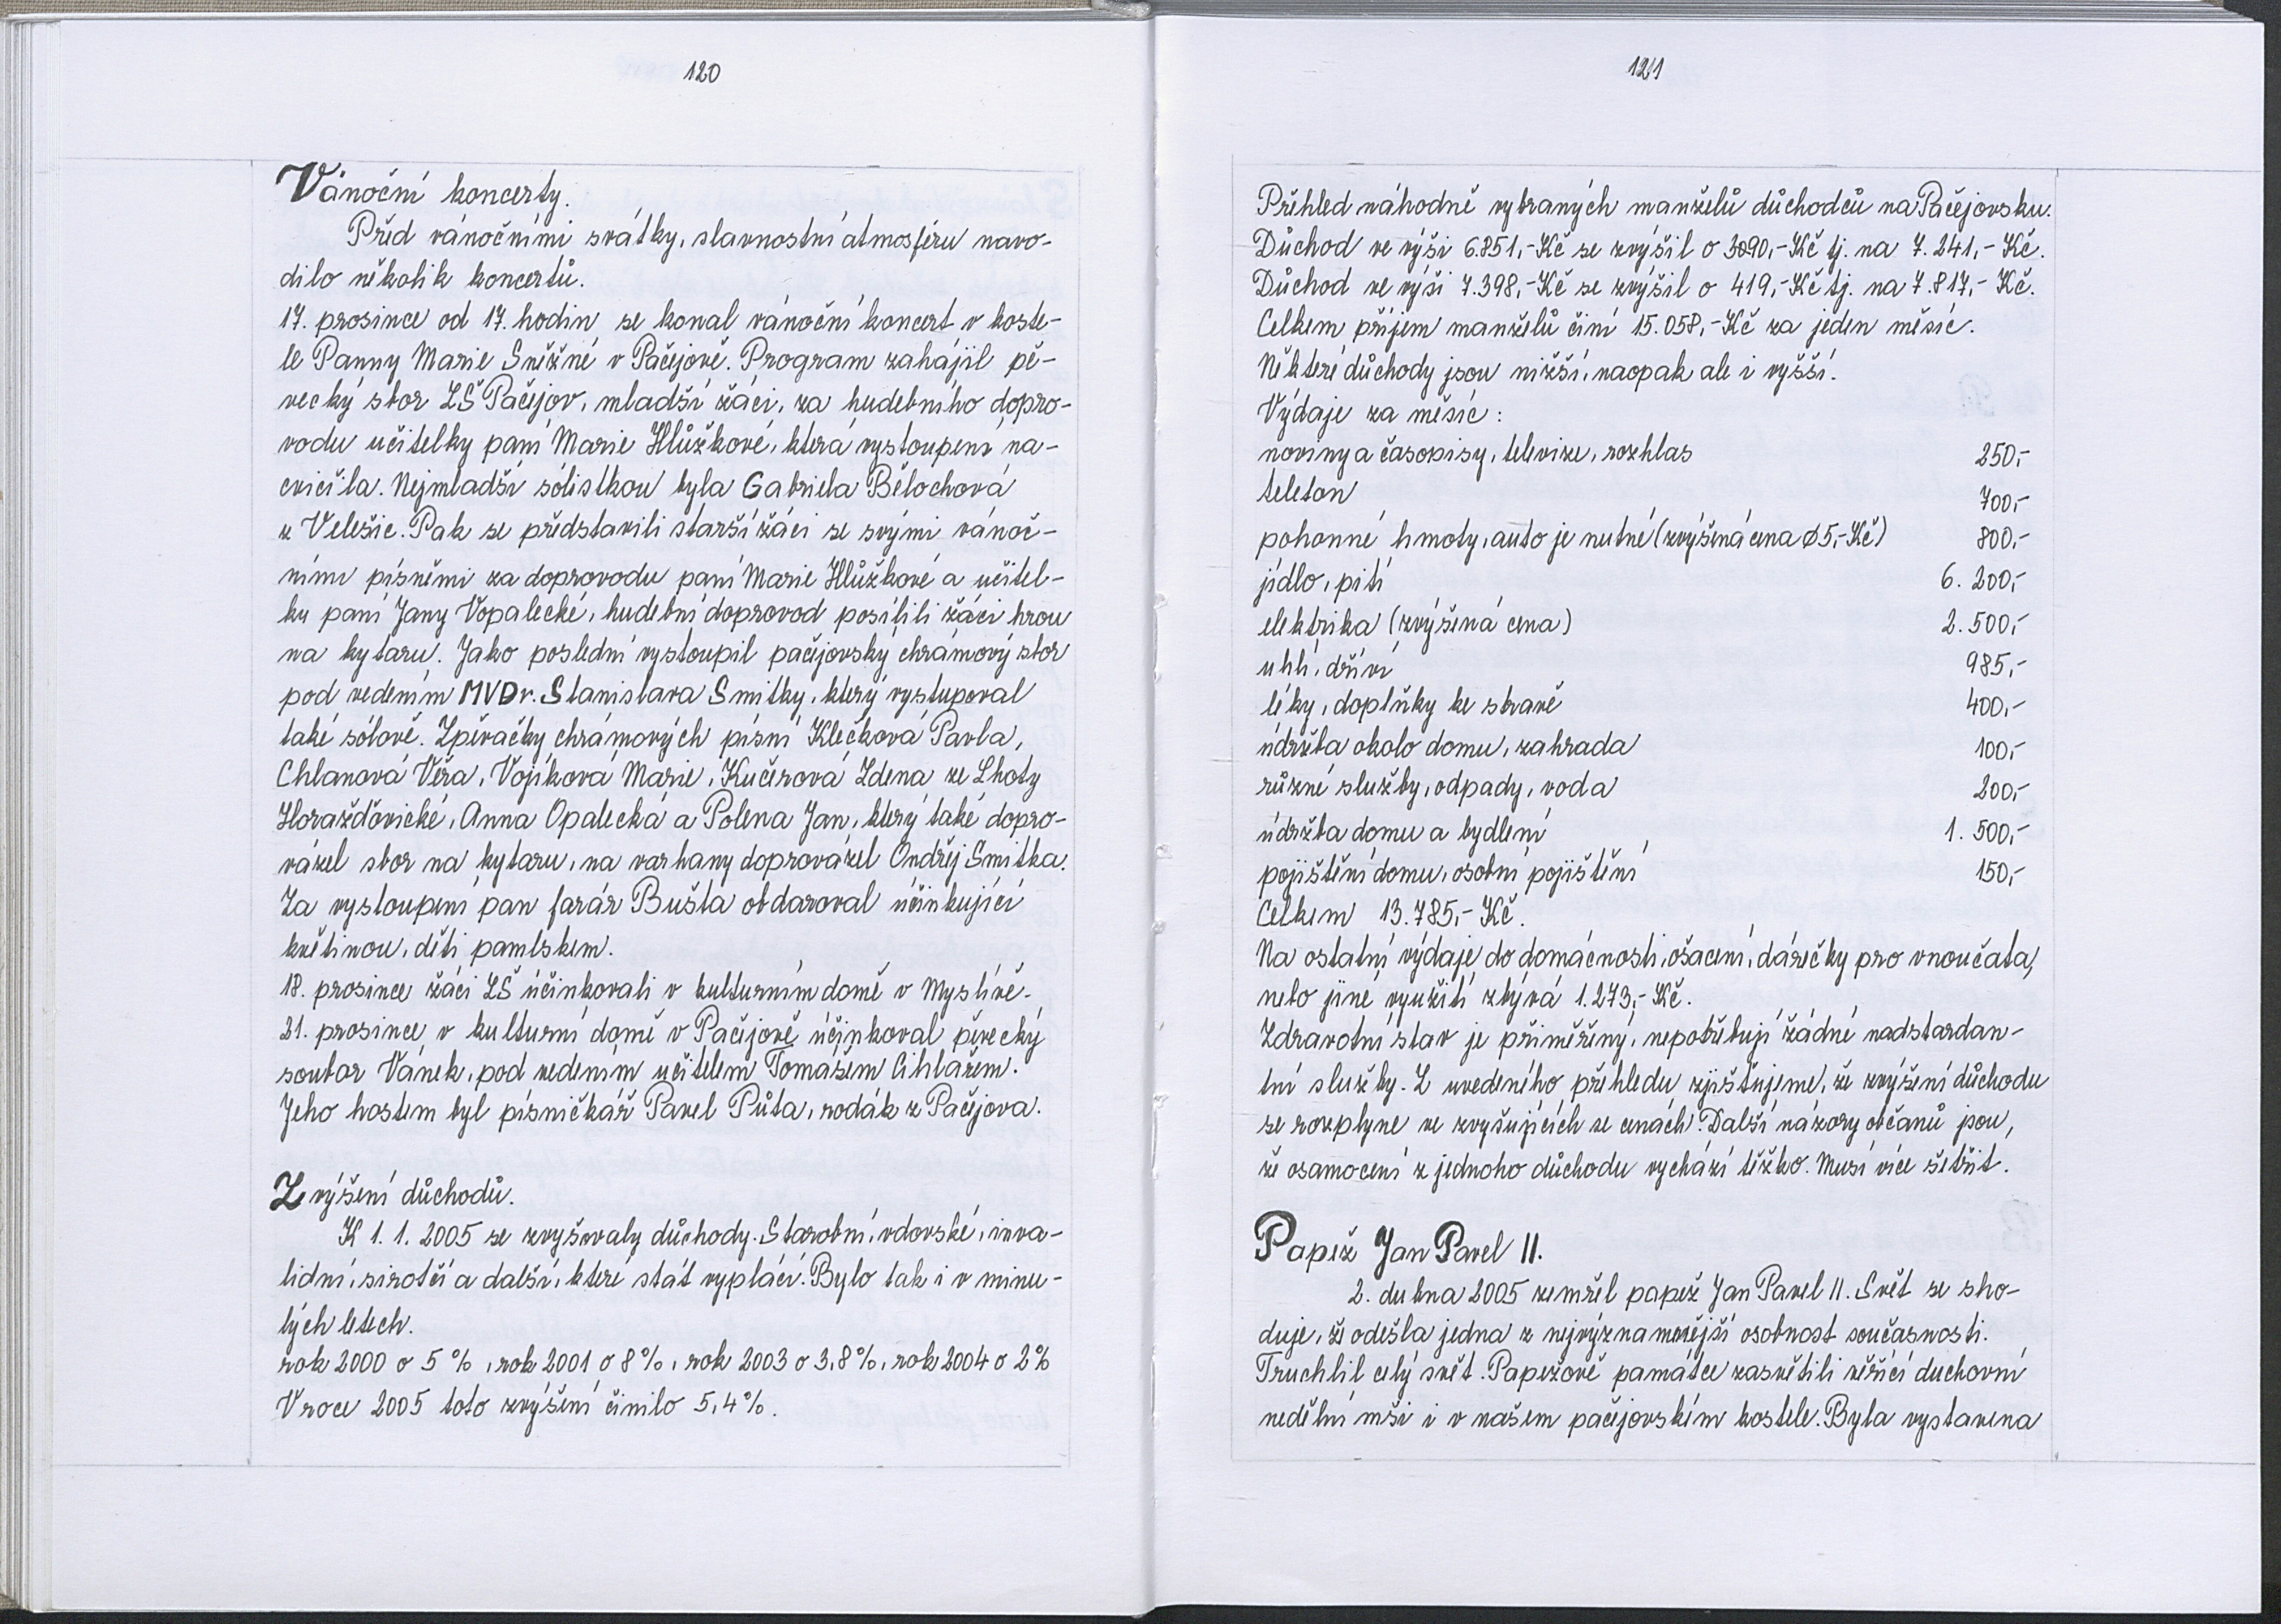 120
Vánoční koncerty.
Před vánočními svátky, slavnostní atmosféru navo-
dilo několik koncertů.
17. prosince od 17. hodin se konal vánoční koncert v koste-
le Panny Marie Sněžné v Pačejově. Program zahájil pě-
vecký sbor ZŠ Pačejov, mladší žáci, za hudebního dopro-
vodu učitelky paní Marie Hlůžkové, která vystoupení na-
cvičila. Nejmladší sólistkou byla Gabriela Bělochová
z Velešic. Pak se představili starší žáci se svými vánoč-
ními písněmi za doprovodu paní Marie Hlůžkové a učitel-
ky paní Jany Vopalecké, hudební doprovod posílili žáci hrou
na kytaru. Jako poslední vystoupil pačejovský chrámový sbor
pod vedením MVDr. Stanislava Smitky, který vystupoval
také sólově. Zpěvačky chrámových písní Klečková Pavla,
Chlanová Věra, Vojíková Marie, Kučerová Zdena ze Lhoty
Horažďovické, Anna Opalecká a Polena Jan, který také dopro-
vázel sbor na kytaru, na varhany doprovázel Ondřej Smitka.
Za vystoupení pan farář Bušta obdaroval účinkující
květinou, děti pamlskem.
18. prosince žáci ZŠ účinkovali v kulturním domě v Myslívě.
21. prosince v kulturní domě v Pačejově účinkoval pěvecký
soubor Vánek, pod vedením učitelem Tomášem Cihlářem.
Jeho hostem byl písničkář Pavel Půta, rodák z Pačejova.
Zvýšení důchodů.
K 1. 1. 2005 se zvyšovaly důchody. Starobní, vdovské, inva-
lidní, sirotčí a další, které stát vyplácí. Bylo tak i v minu-
lých letech.
rok 2000 o 5 %, rok 2001 o 8 %, rok 2003 o 3,8 %, rok 2004 o 2 %
V roce 2005 toto zvýšení činilo 5,4 %.
121
Přehled náhodně vybraných manželů důchodců na Pačejovsku.
Důchod ve výši 6.851,- Kč se zvýšil o 3090,- Kč tj. na 7.241,- Kč.
Důchod ve výši 7.398,- Kč se zvýšil o 419,- Kč tj. na 7.817,- Kč.
Celkem příjem manželů činí 15.058,- Kč za jeden měsíc.
Některé důchody jsou nižší, naopak ale i vyšší.
Výdaje za měsíc:
noviny a časopisy, televize, rozhlas 250,-
telefon 700,-
pohonné hmoty, auto je nutné (zvýšená cena ø 5,- Kč) 800,-
jídlo, pití 6. 200,-
elektrika (zvýšená cena) 2. 500,-
uhlí, dříví 985,-
léky, doplňky ke stravě 400,-
údržba okolo domu, zahrada 100,-
různé služby, odpady, voda 200,-
údržba domu a bydlení 1. 500,-
pojištění domu, osobní pojištění 150,-
Celkem 13.785,- Kč.
Na ostatní výdaje do domácnosti, ošacení, dárečky pro vnoučata,
nebo jiné využití zbývá 1.273,- Kč.
Zdravotní stav je přiměřený, nepotřebují žádné nadstardan-
tní služby. Z uvedeného přehledu zjišťujeme, že zvýšení důchodu
se rozplyne ve zvyšujících se cenách. Další názory občanů jsou,
že osamocení z jednoho důchodu vychází těžko. Musí více šetřit.
Papež Jan Pavel II.
2. dubna 2005 zemřel papež Jan Pavel II. Svět se sho-
duje, že odešla jedna z nejvýznamnější osobnost současnosti.
Truchlil celý svět. Papežově památce zasvětili věřící duchovní
nedělní mši i v našem pačejovském kostele. Byla vystavena